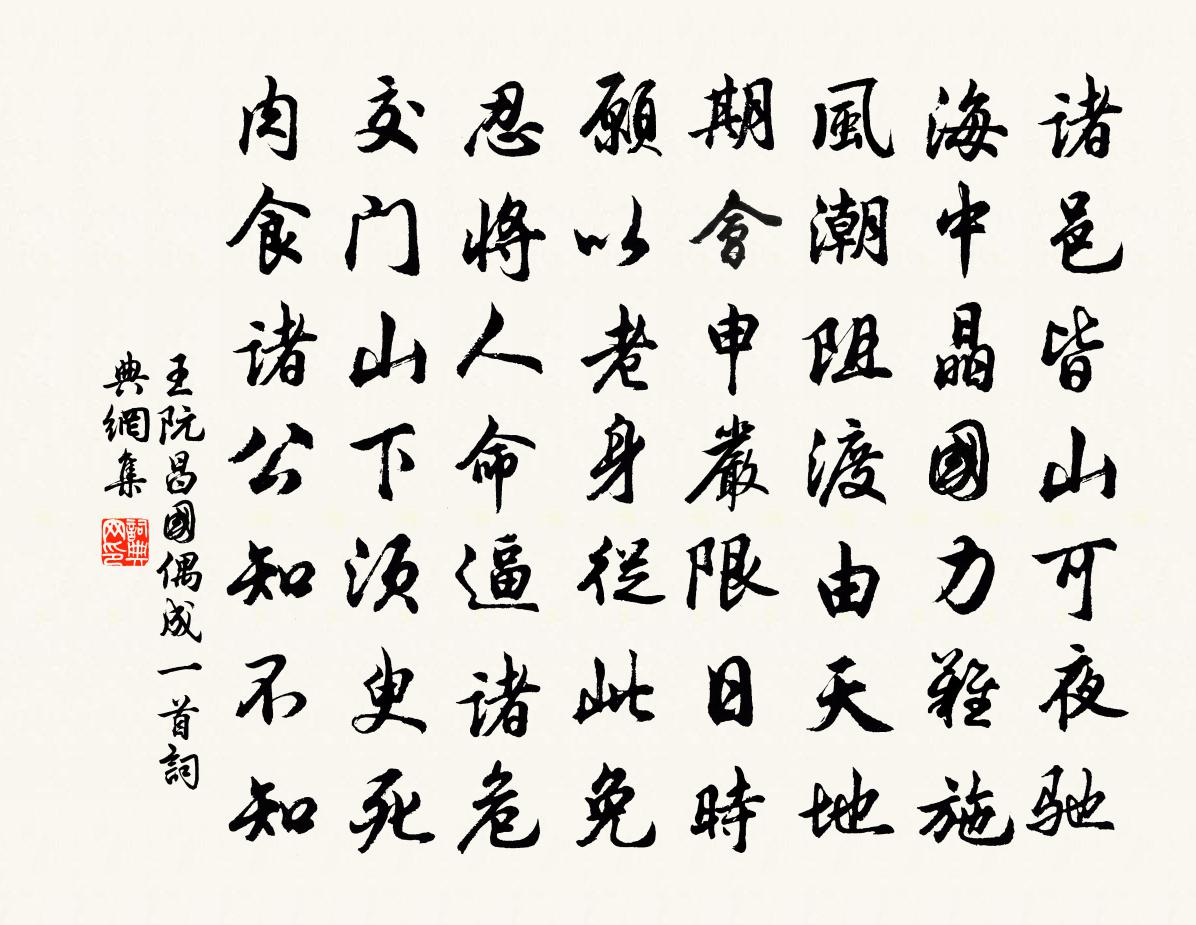 諸邑皆山可夜馳
海中晶國力難施
風潮阻渡由天地
期會申嚴限日時
願以老身從此免
忍將人命逼諸危
交門山下須臾死
肉食諸公知不知
王阮昌國偶成一首詞
典網集
詞典網印